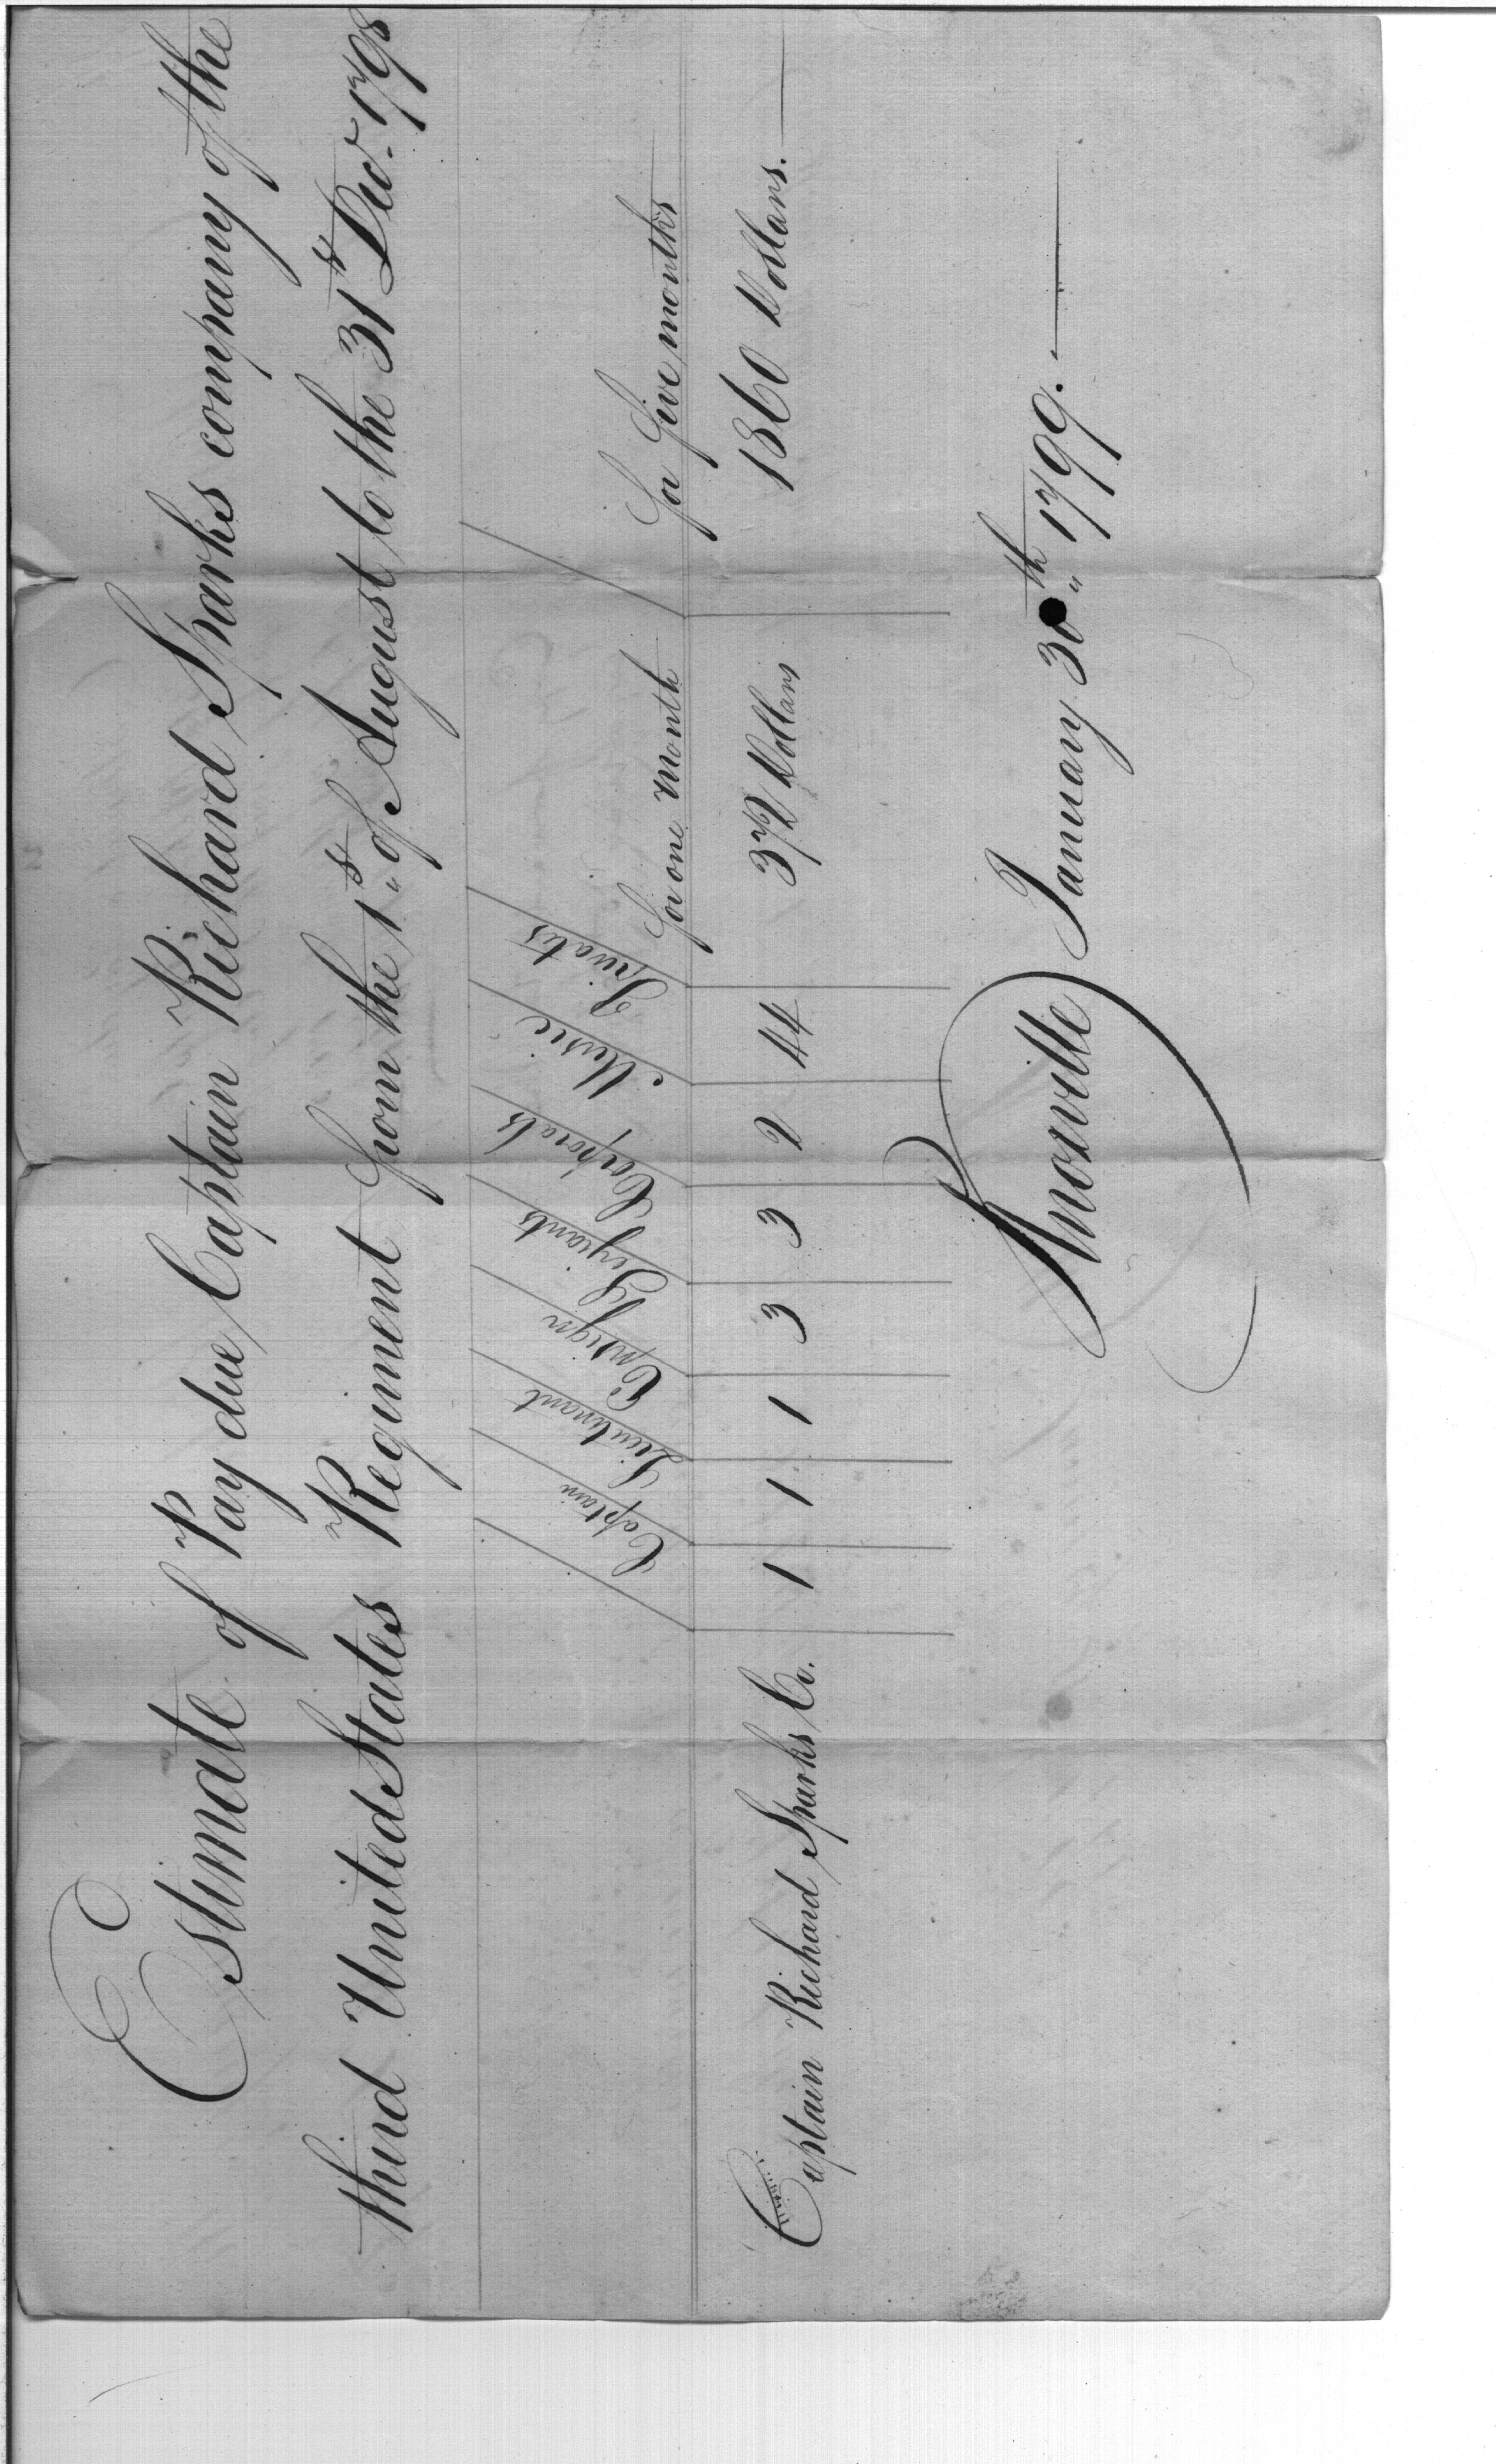 Estimate of Pay due Captain Richard Sparks company of the
third United States Regiment from the 1st of August to the 31st Decr. 1798
Captain Lieutenant Ensign Serjeants Corporals Music Privates for one Month for five months
Captain Richard Sparks Co. 1 1 1 3 3 2 44 372 Dollars 1860 Dollars.
Knoxville January 30th 1799.